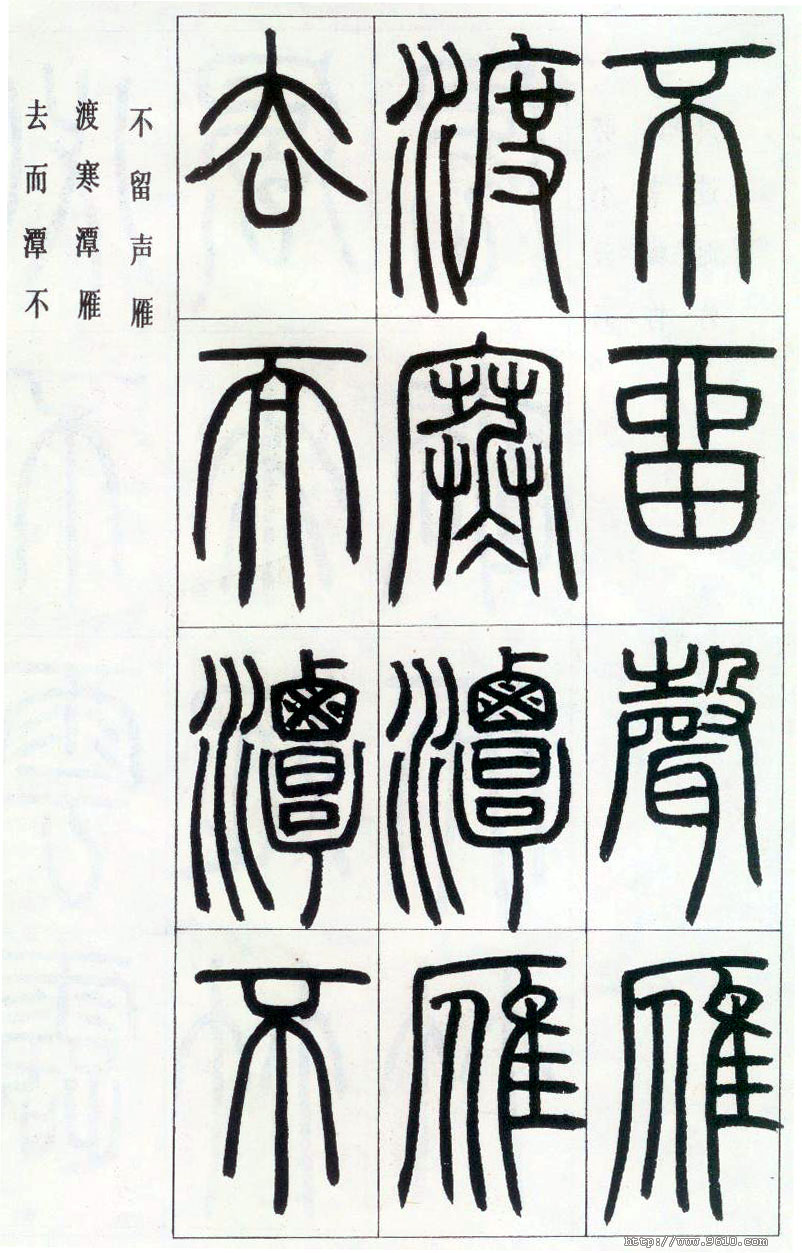 不留聲雁
渡寒潭雁
去而潭不
不留声雁
渡寒潭雁
去而潭不
http://www.9610.com